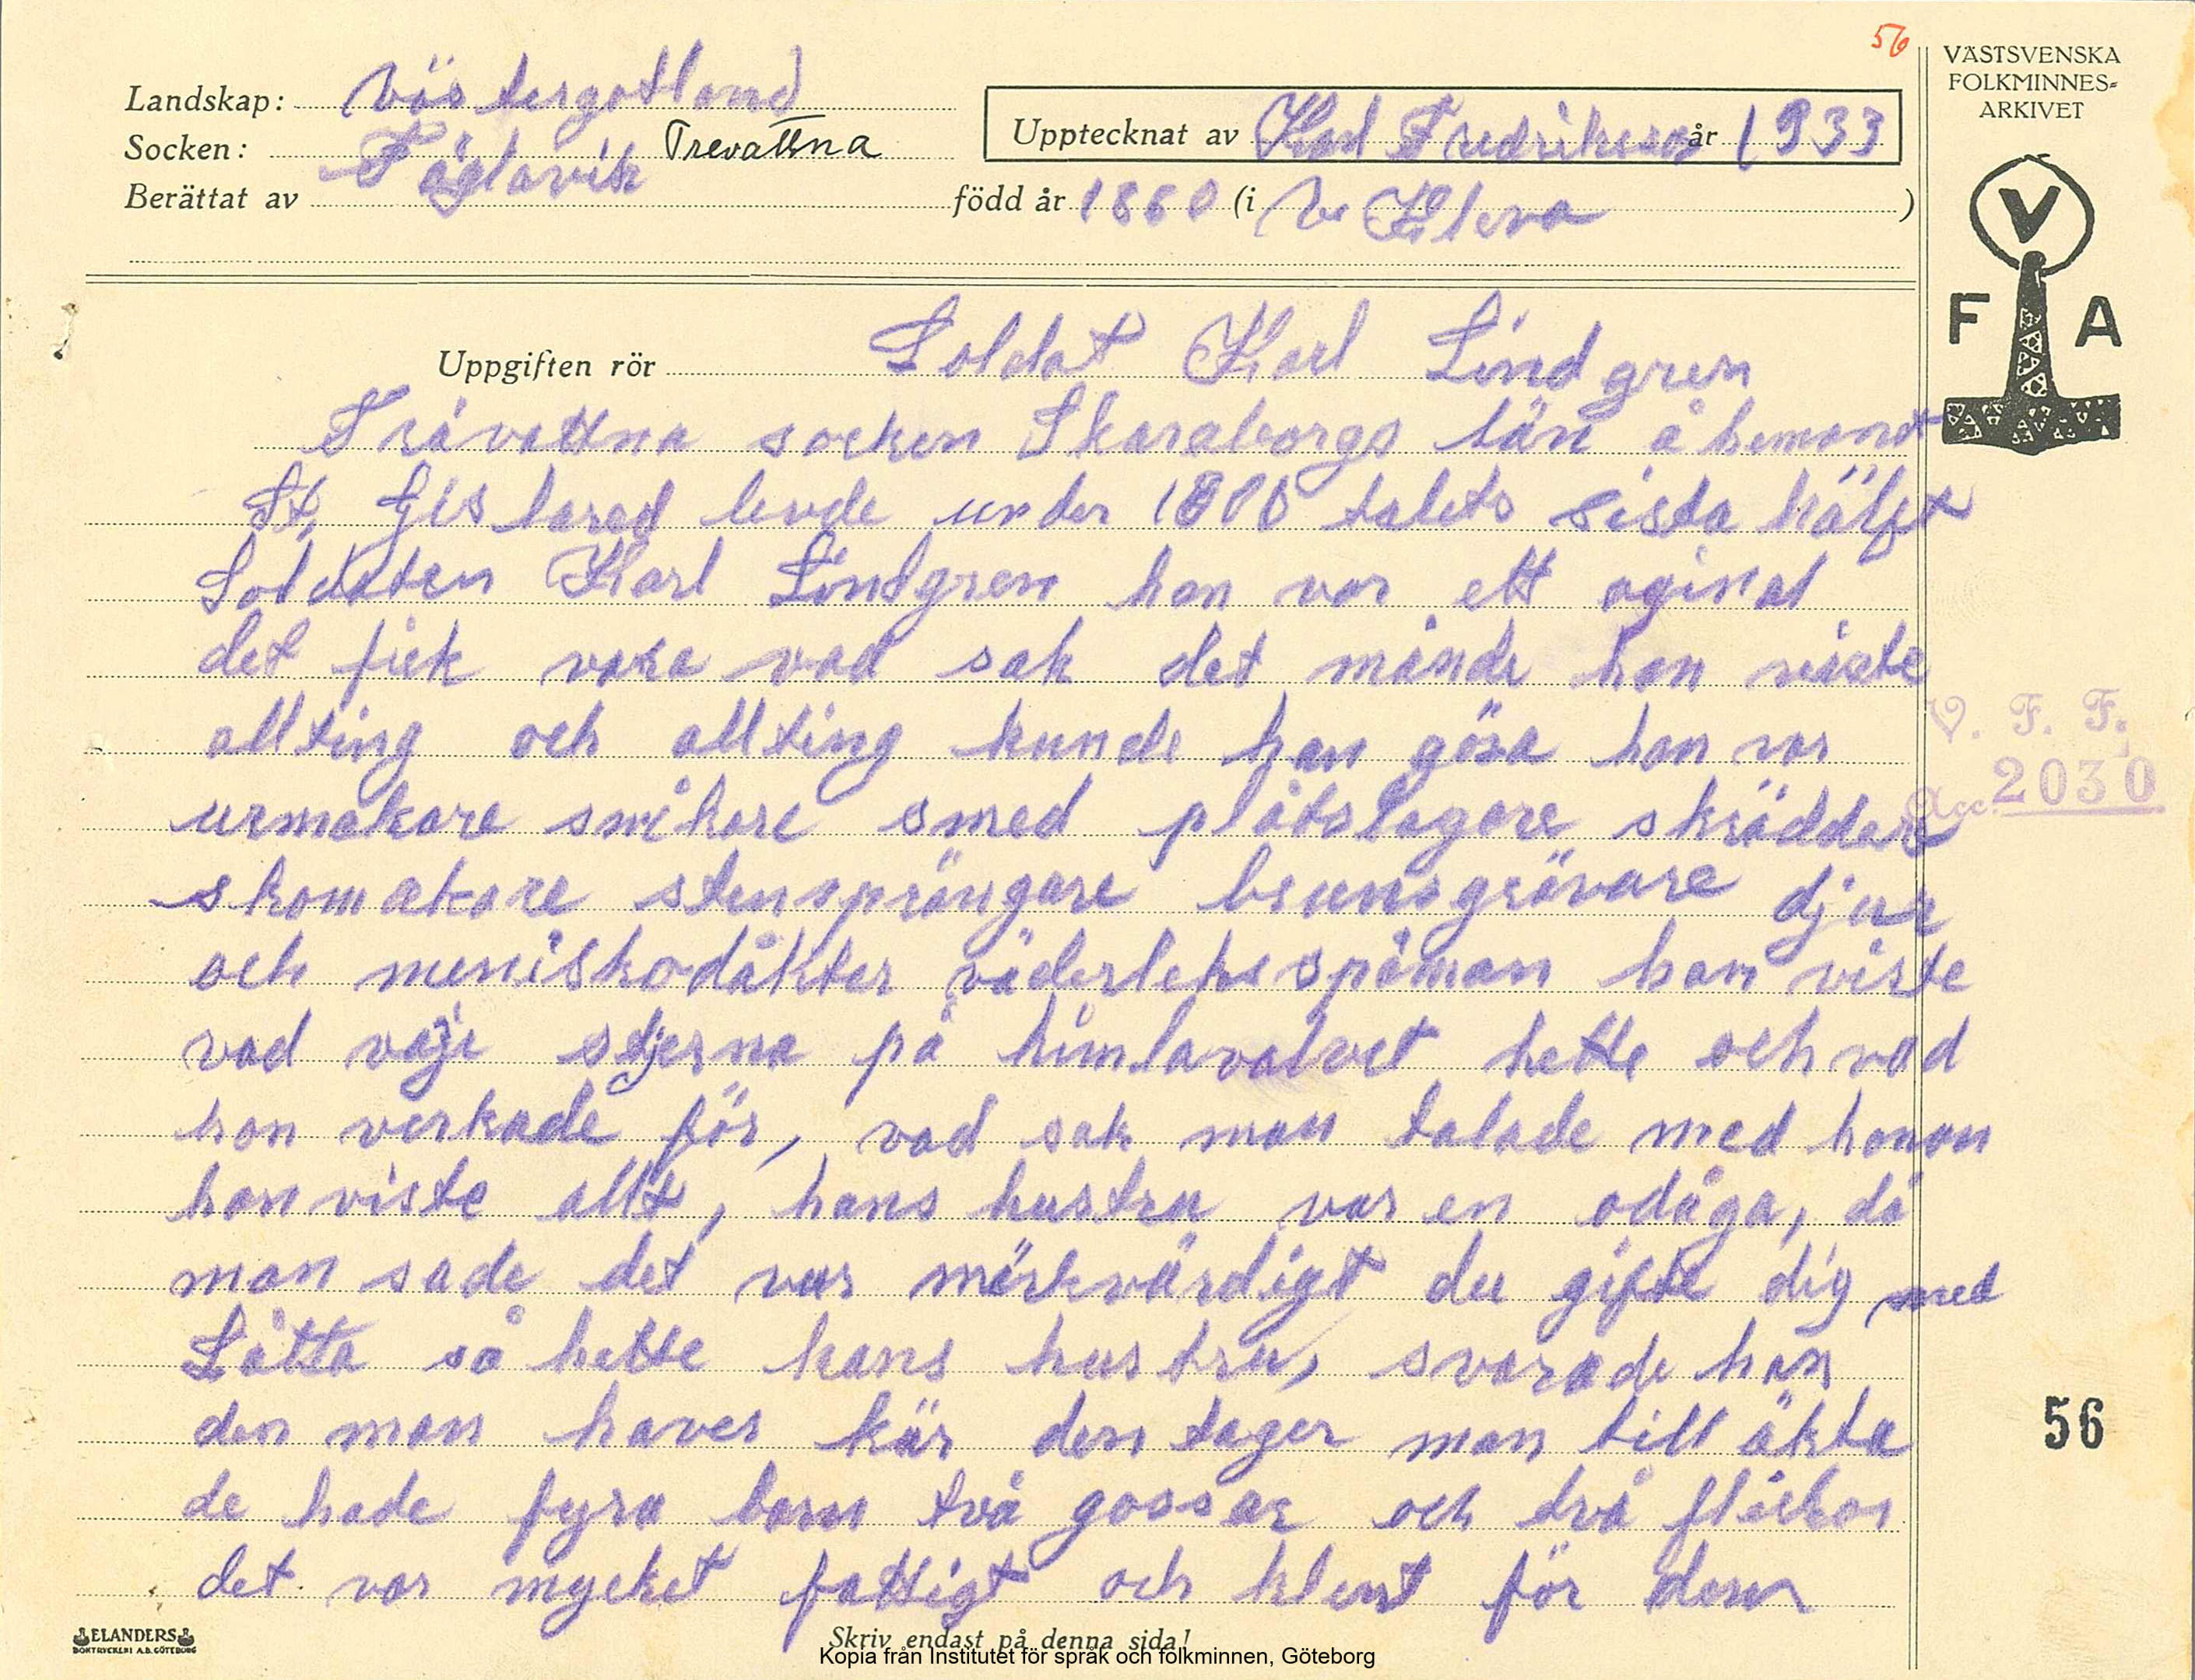 56
VÄSTSVENSKA
FOLKMINNES=
ARKIVET
Landskap: Västergotland
Socken: Fåglavik Trevattna
Upptecknat av Karl Fredriksson år 1933
Berättat av
född år 1860 (i V. Kleva )
V
F A
Uppgiften rör Soldat Karl Lindgren
Trävattna socken Skaraborgs län å hemand
St, Gislared levde under 1800 talets sista hälft
Soldaten Karl Lindgren han var ett oginal
det fick vara vad sak det månde han viste
allting och allting kunde han göra han var
urmakare snikare smed plåtslagare skräddare
skomakare stensprängare brunsgrävare djur
och meniskodåkter väderleksspåman han viste
vad varje stjerna på himlavalvet hette och vad
hon verkade för, vad sak man talade med honon
han viste allt, hans hustru var en odåga, då
man sade det var märkvärdigt du gifte dig med
Låtta så hette hans hustru, svarade han
den man haver kär den tager man till äkta
de hade fyra barn två gossar och två flickor
det var mycket fattigt och klent för dem
V. F. F.
Acc. 2030
56
ELANDERS
BOKTRYCKERI A.B. GÖTEBORG
Skriv endast på denna sida!
Kopia från Institutet för språk och folkminnen, Göteborg